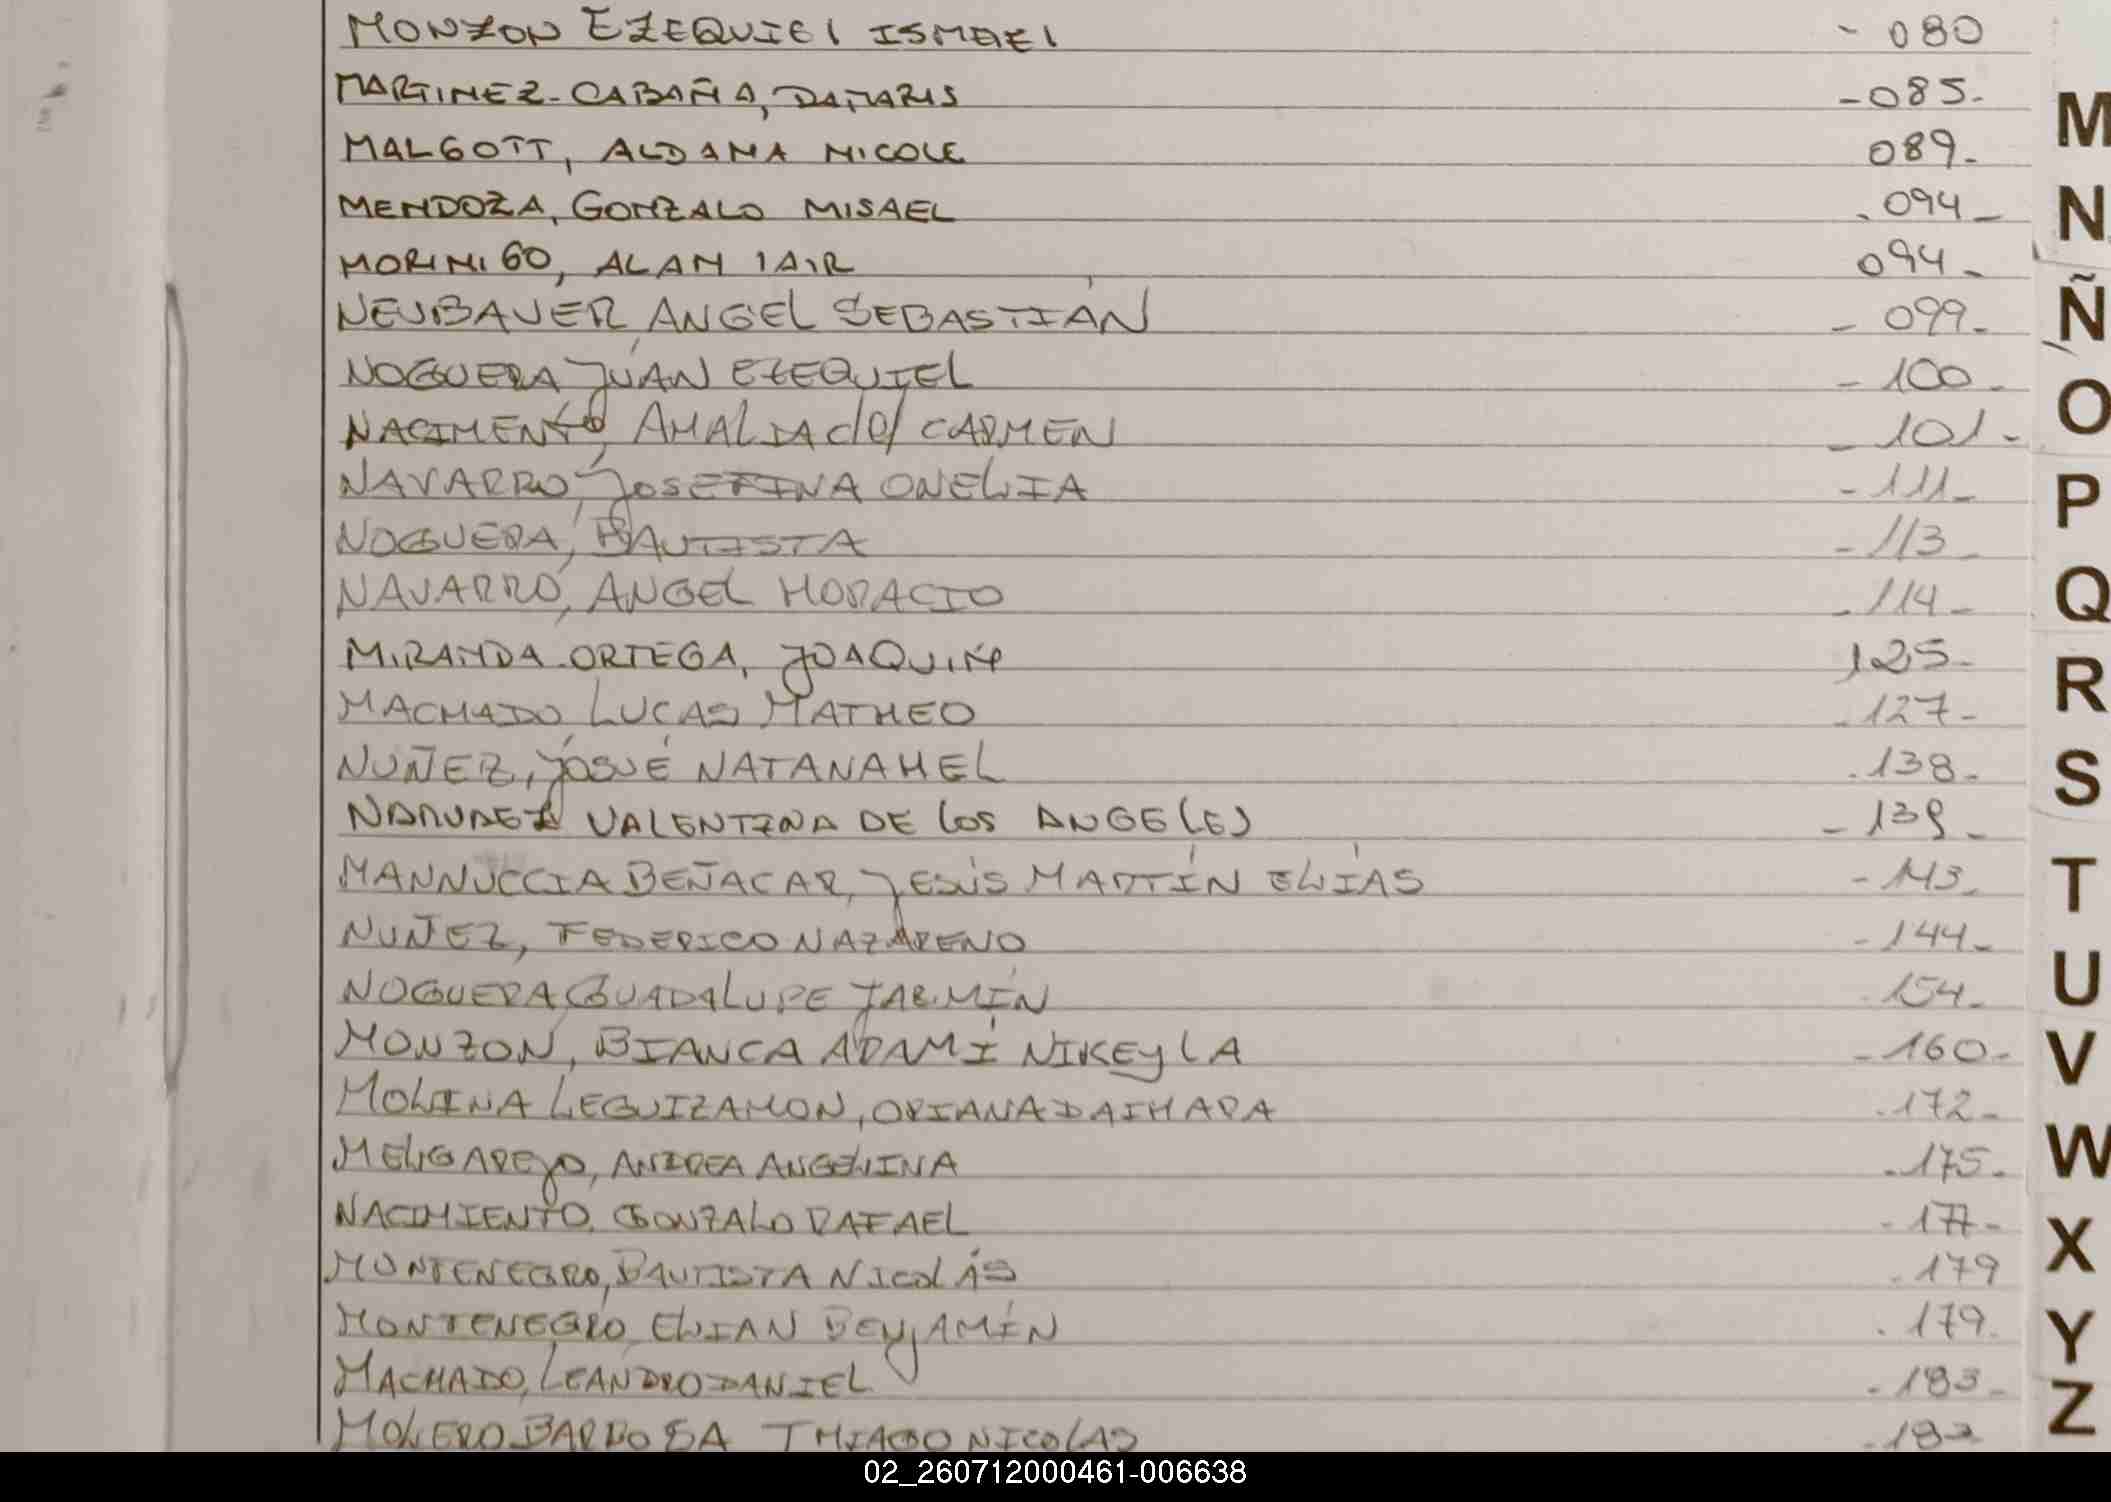 MONZON EZEQUIEL ISMAEL - 080
MARTINEZ-CABAÑA, DAMARIS - 085-
MALGOTT, ALDANA NICOLE 089-
MENDOZA, GONZALO MISAEL - 094-
MORINIGO, ALAN IAIR 094-
NEUBAUER, ANGEL SEBASTIÁN - 099-
NOGUERA, JUAN EZEQUIEL - 100-
NACIMENTO, AMALIA del CARMEN - 101-
NAVARRO, JOSEFINA ONELIA - 111-
NOGUERA, BAUTISTA - 113-
NAVARRO, ANGEL HORACIO - 114-
MIRANDA-ORTEGA, JOAQUIN 125-
MACHADO, LUCAS MATHEO - 127-
NUÑEZ, JOSUÉ NATANAHEL - 138-
NARVAEZ VALENTINA DE LOS ANGELES - 139-
MANNUCCIA BEÑACAR, JESÚS MARTÍN ELÍAS - 143-
NUÑEZ, FEDERICO NAZARENO - 144-
NOGUERA, GUADALUPE YAZMÍN 154-
MONZON, BIANCA ADAMÍ NIKEYLA - 160-
MOLINA LEGUIZAMON, ORIANA DAIHARA - 172-
MELGAREJO, ANDREA ANGELINA - 175-
NACIMIENTO, GONZALO RAFAEL - 177-
MONTENEGRO, BAUTISTA NICOLÁS - 179
MONTENEGRO, ELIAN BENJAMÍN - 179-
MACHADO, LEANDRO DANIEL - 183-
MOLERO BARBOSA THIAGO NICOLAS
M
N
Ñ
O
P
Q
R
S
T
U
V
W
X
Y
Z
02_260712000461-006638